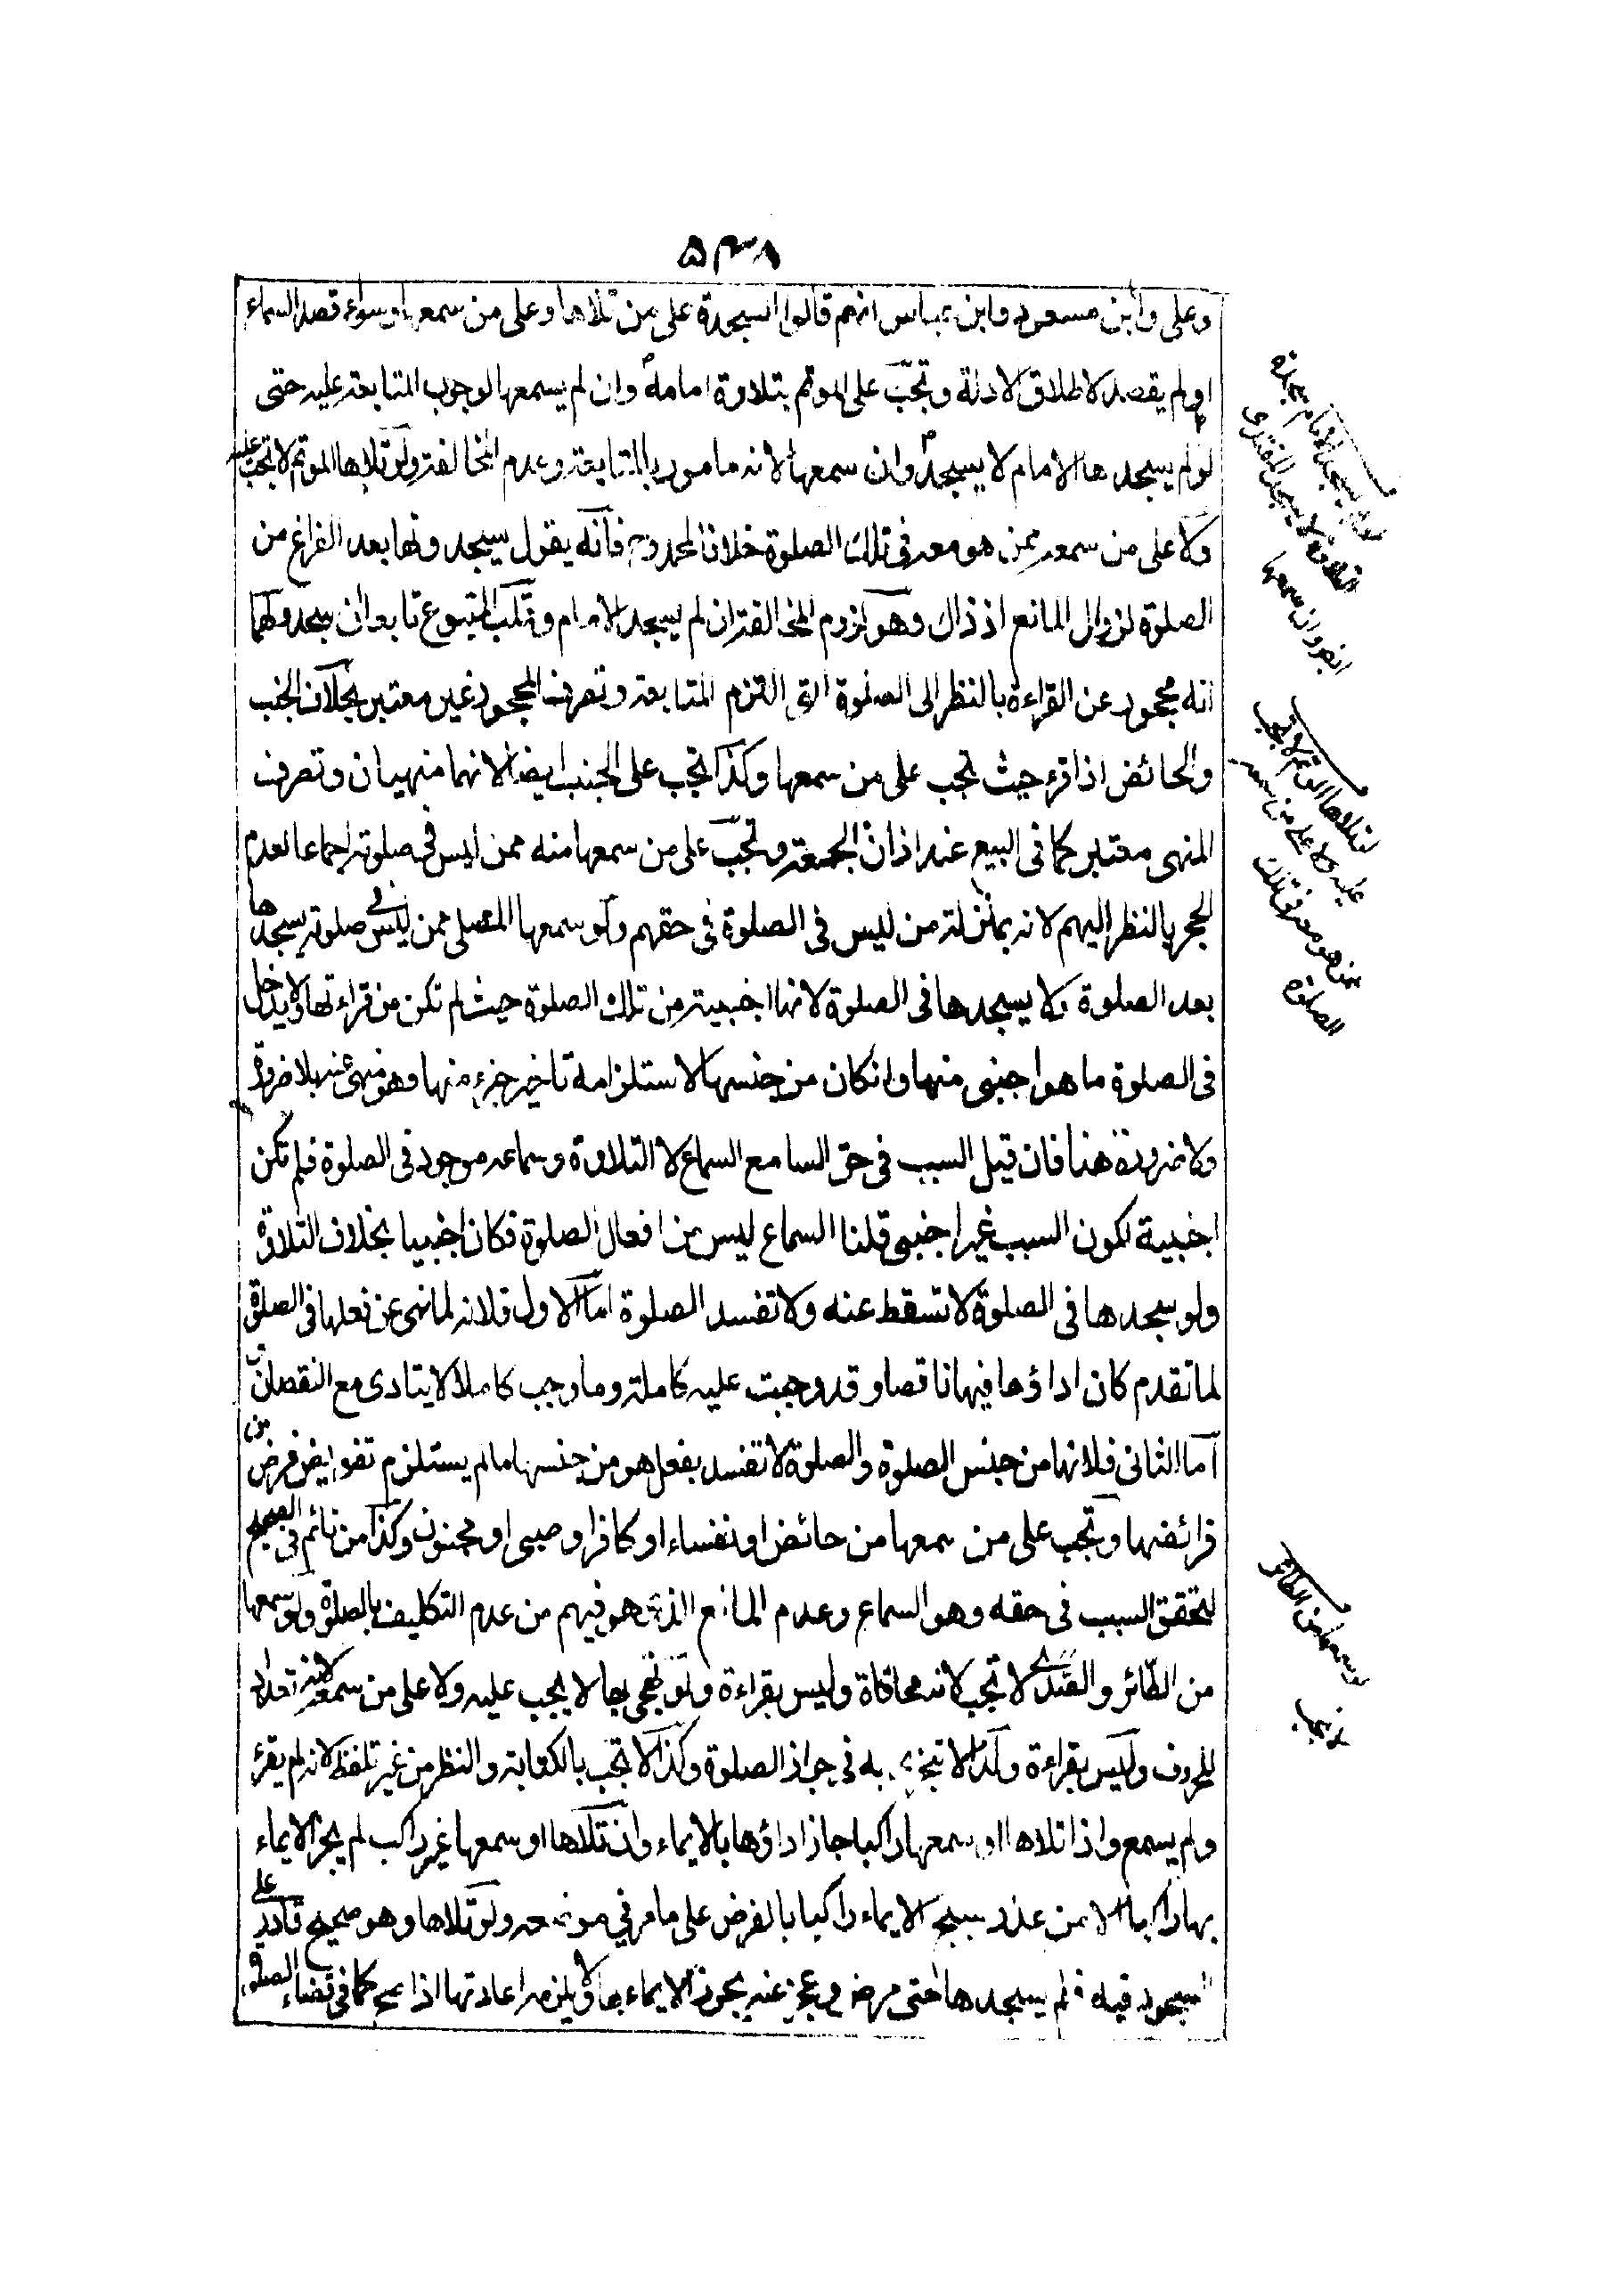 ۵۳۸
وعلى وابن مسعود وابن عباس انهم قالوا السجدة على من تلاها وعلى من سمعها وسواء قصد السماع
او لم يقصد لاطلاق الادلة وتجب على المؤتم بتلاوة امامه وان لم يسمعها لوجوب المتابعة عليه حتى
لو لم يسجدها الامام لا يسجد وان سمعها لانه مامور بالمتابعة وعدم المخالفة ولو تلاها المؤتم لا تجب عليه
ولا على من سمعه ممن هو معه في تلك الصلوة خلافا لمحمد فانه يقول يسجدونها بعد الفراغ من
الصلوة لزوال المانع اذ ذاك وهو لزوم المخالفة ان لم يسجد الامام وقلب المتبوع تابعا ان سجد ولهما
انه محجور عن القراءة بالنظر الى الصلوة التى التزم المتابعة وتصرف المحجور غير معتبر بخلاف الجنب
والحائض اذا قرء حيث تجب على من سمعها وكذا تجب على الجنب ايضا لانهما منهيان وتصرف
المنهى معتبر كما فى البيع عند اذان الجمعة وتجب على من سمعها منه ممن ليس فى صلوته اجماعا لعدم
الحجر بالنظر اليهم لانه بمنزلة من ليس فى الصلوة فى حقهم ولو سمعها المصلى ممن ليس فى صلوته يسجدها
بعد الصلوة ولا يسجدها فى الصلوة لانها اجنبية من تلك الصلوة حيث لم تكن من قراءتها ولا يدخل
فى الصلوة ما هو اجنبى منها وان كان من جنسها لاستلزامه تاخير جزء منها وهو منهى عنه بلا ضرورة
ولا ضرورة هنا فان قيل السبب فى حق السامع السماع لا التلاوة وسماعه موجود فى الصلوة فلم تكن
اجنبية لكون السبب غير اجنبى قلنا السماع ليس من افعال الصلوة فكان اجنبيا بخلاف التلاوة
ولو سجدها فى الصلوة لا تسقط عنه ولا تفسد الصلوة اما الاول فلانه لما نهى عن فعلها فى الصلوة
لما تقدم كان اداؤها فيها ناقصا وقد وجبت عليه كاملة وما وجب كاملا لا يتادى مع النقصان و
اما الثانى فلانها من جنس الصلوة والصلوة لا تفسد بفعل هو من جنسها ما لم يستلزم تفويض فرض من
فرائضها وتجب على من سمعها من حائض او نفساء او كافر او صبى او مجنون وكذا من نائم فى الصحيح
لتحقق السبب فى حقه وهو السماع وعدم المانع الذى هو فيهم من عدم التكليف بالصلوة ولو سمعها
من الطائر والصدى لا تجب لانه محاكاة وليس بقراءة ولو تهجى بها لا يجب عليه ولا على من سمعه لانه تعداد
للحروف وليس بقراءة ولذا لا تجزى به فى جواز الصلوة وكذا لا تجب بالكتابة والنظر من غير تلفظ لانه لم يقرء
ولم يسمع واذا تلاها او سمعها راكبا جاز اداؤها بالايماء وان تلاها او سمعها غير راكب لم يجز الايماء
بها راكبا الا من عذر يبيح الايماء راكبا بالفرض على ما مر في موضعه ولو تلاها وهو صحيح قادر على
السجود فيه فلم يسجدها حتى مرض وعجز عنه يجوز الايماء بها ولا يلزمه اعادتها اذا صح كما فى قضاء الصلوة
لو لم يسجد الامام سجدة
التلاوة لا يسجد المقتدى
ايضا وان سمعها
لو تلاها المؤتم لا تجب
عليه ولا على من سمعه
ممن هو معه فى تلك
الصلوة
لو سمعها من الطائر
لا تجب